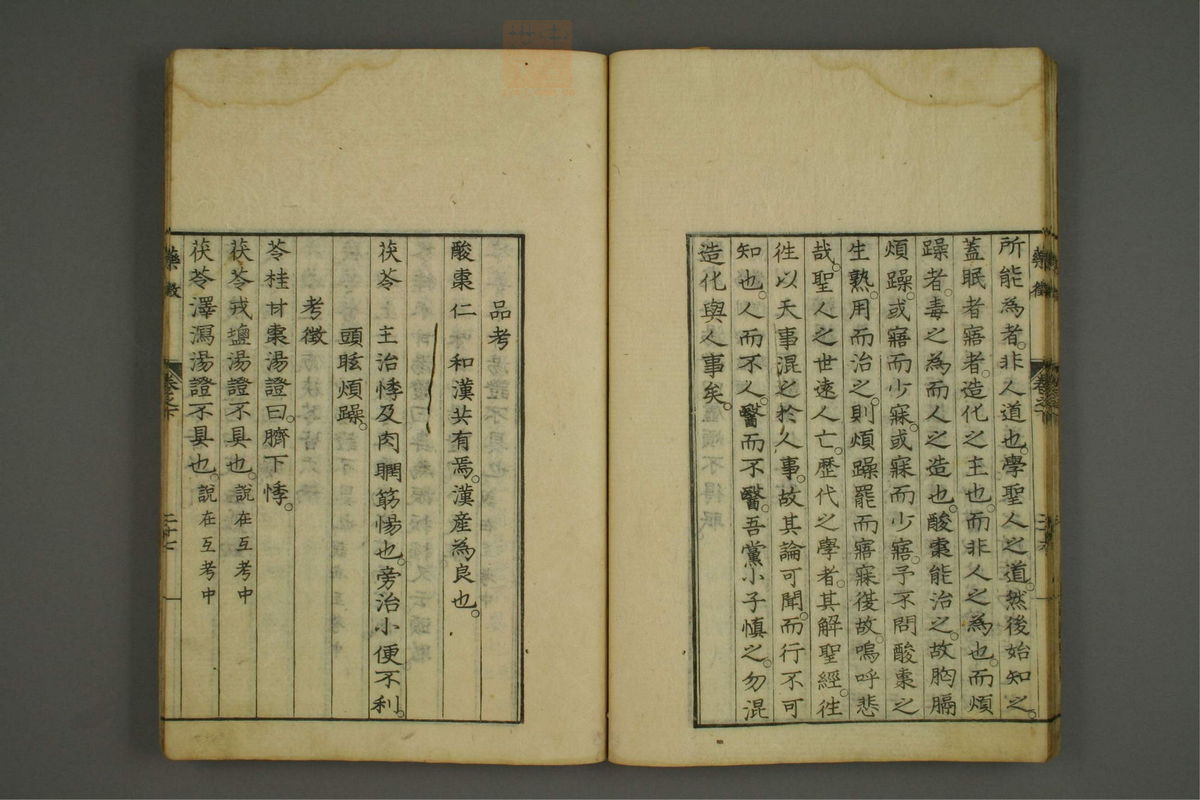 所能為者。非人道也。學聖人之道。然後始知之。
蓋眠者寤者。造化之主也。而非人之為也。而煩
躁者。毒之為而人之造也。酸棗能治之。故胸膈
煩躁。或寤而少寐。或寐而少寤。予不問酸棗之
生熟。用而治之。則煩躁罷而寤寐復故。嗚呼悲
哉。聖人之世遠人亡。歷代之學者。其解聖經。往
往以天事混之於人事。故其論可聞。而行不可
知也。人而不人。醫而不醫。吾黨小子慎之。勿混
造化與人事矣。
藥徵
卷之下
二十六
品考
酸棗仁 和漢共有焉。漢産為良也。
茯苓 主治悸及肉瞤筋惕也。旁治小便不利。
頭眩煩躁。
考徵
苓桂甘棗湯證曰。臍下悸。
茯苓戎鹽湯證不具也。說在互考中
茯苓澤瀉湯證不具也。說在互考中
藥徵
卷之下
二十七